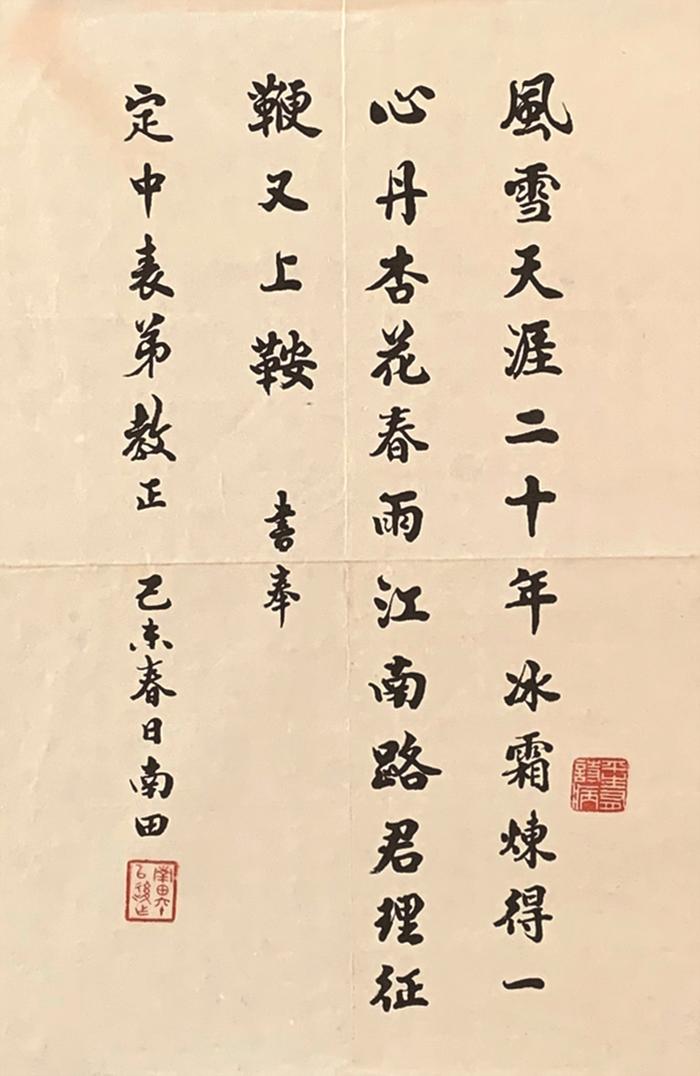 風雪天涯二十年冰霜煉得一
心丹杏花春雨江南路君理征
鞭又上鞍 書奉
定中表弟教正 己未春日南田
南田六十以後作